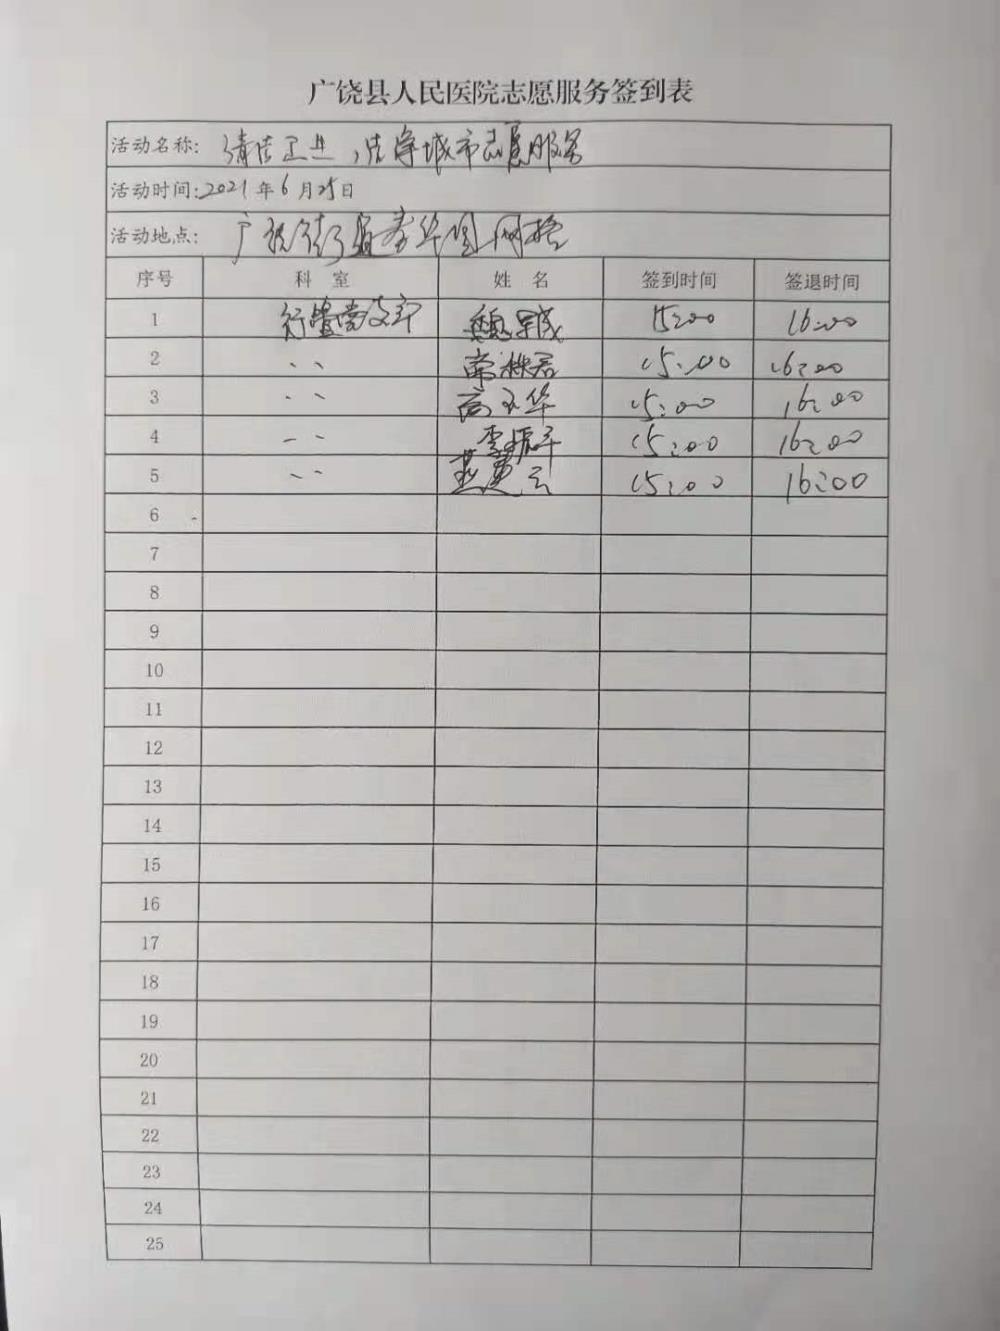 广饶县人民医院志愿服务签到表
活动名称: 清洁卫生,洁净城市志愿服务
活动时间:2021年6月25日
活动地点: 广饶街道春华园网格
序号 科 室 姓 名 签到时间 签退时间
1 行管党支部 魏 15:00 16:00
2 〃 常 君 15:00 16:00
3 〃 高玉华 15:00 16:00
4 〃 李振军 15:00 16:00
5 〃 燕 云 15:00 16:00
6
7
8
9
10
11
12
13
14
15
16
17
18
19
20
21
22
23
24
25